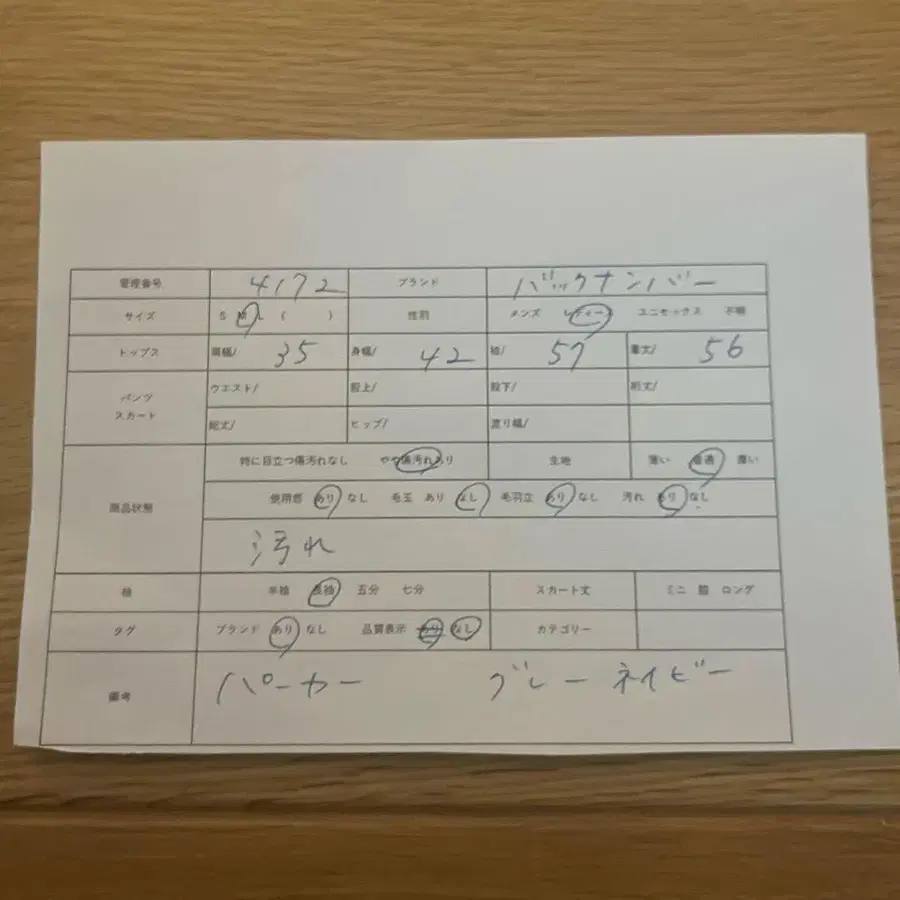 管理番号 4172 ブランド バックナンバー
サイズ S M L ( ) 性別 メンズ レディース ユニセックス 不明
トップス 肩幅/ 35 身幅/ 42 袖/ 57 着丈/ 56
パンツ スカート ウエスト/ 股上/ 股下/ 裄丈/
総丈/ ヒップ/ 渡り幅/
商品状態 特に目立つ傷汚れなし やや傷汚れあり 生地 薄い 普通 厚い
使用感 あり なし 毛玉 あり なし 毛羽立 あり なし 汚れ あり なし
汚れ
袖 半袖 長袖 五分 七分 スカート丈 ミニ 膝 ロング
タグ ブランド あり なし 品質表示 あり なし カテゴリー
備考 パーカー グレー ネイビー